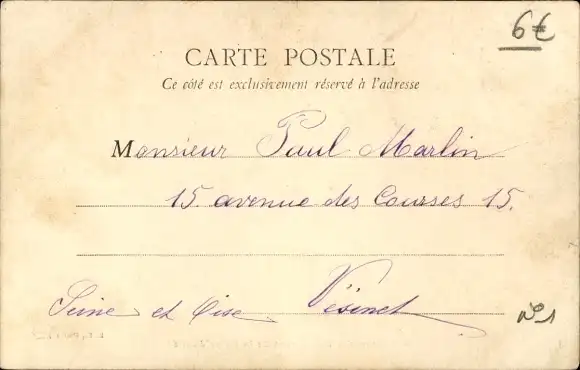 6€
CARTE POSTALE
Ce côté est exclusivement réservé à l'adresse
Monsieur Paul Marlin
15. avenue des Courses 15.
Vésinet
Seine et Oise
N°1